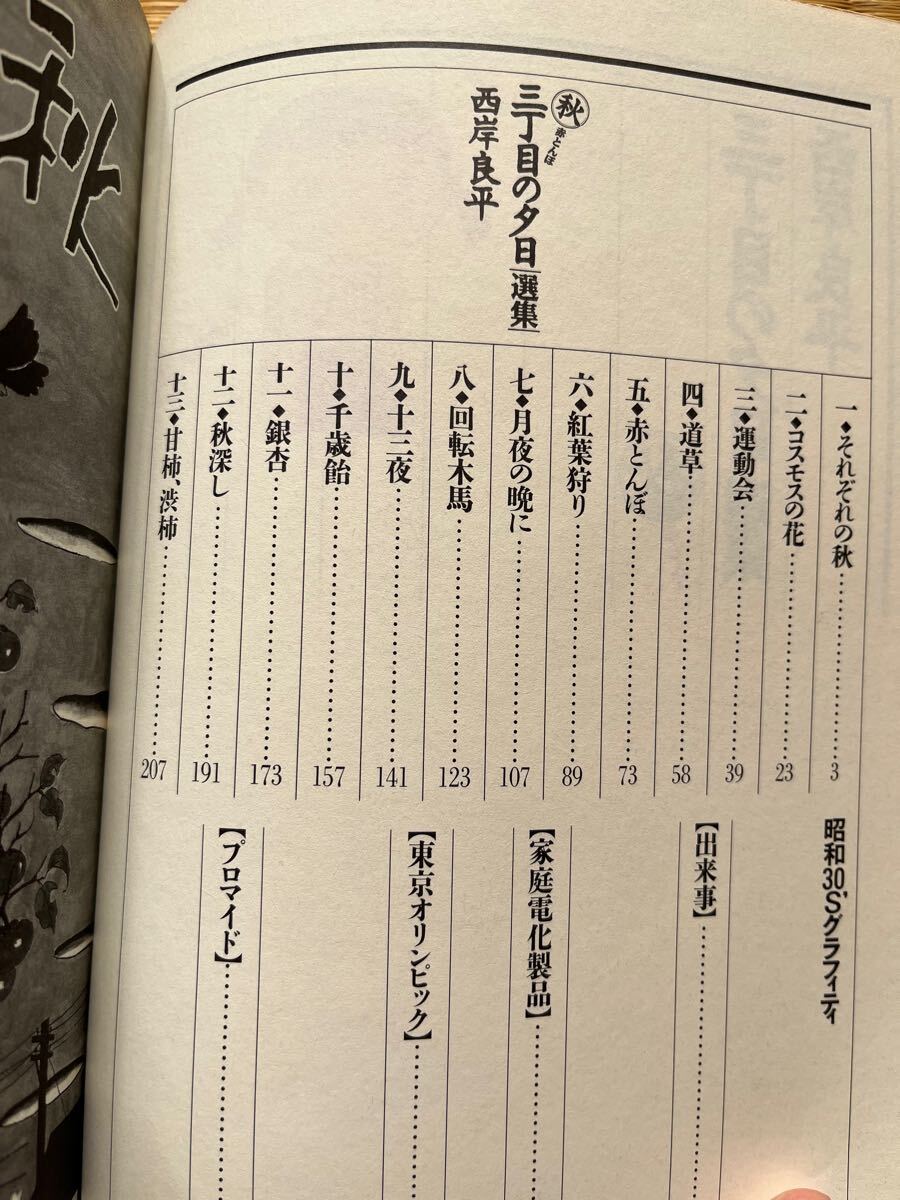 秋
秋
赤とんぼ
三丁目の夕日選集
西岸良平
一◆それぞれの秋……………3
二◆コスモスの花……………23
三◆運動会……………39
四◆道草……………58
五◆赤とんぼ……………73
六◆紅葉狩り……………89
七◆月夜の晩に……………107
八◆回転木馬……………123
九◆十三夜……………141
十◆千歳飴……………157
十一◆銀杏……………173
十二◆秋深し……………191
十三◆甘柿、渋柿……………207
昭和30'Sグラフィティ
【出来事】……………
【家庭電化製品】……………
【東京オリンピック】……………
【ブロマイド】……………